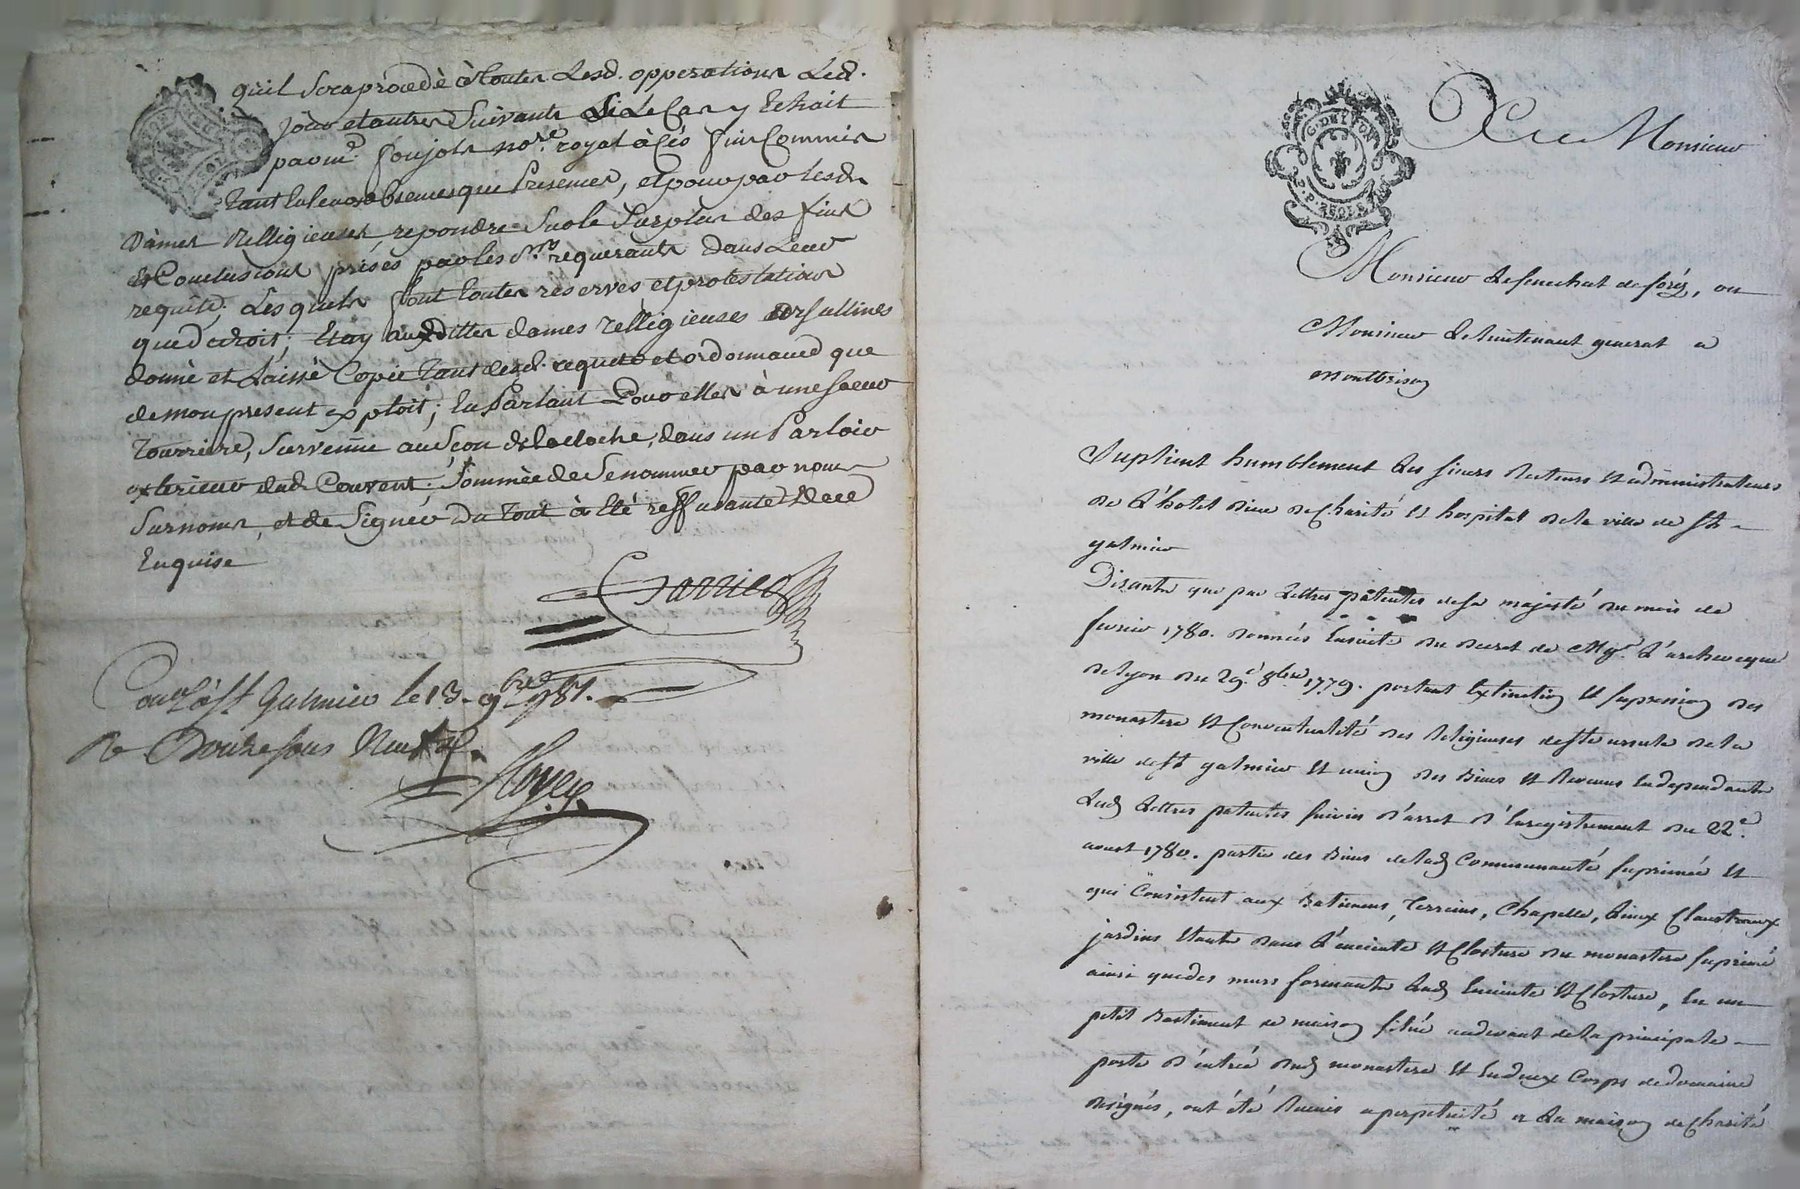 qu'il sera procédé à toutes lesd. opperations led.
jour et autres suivants si le cas y Echait
par me. foujols nore. royal à cés fins commis
tant En leurs absences que Presences, et pour par lesdes
Dames Relligieuses repondre sur le surplus des fins
Et Conclusions prises par les srs requerants dans leur
requête. Lesquels font toutes reserves et protestations
que de droit; Et ay auxdittes dames relligieuses Ursullines
donné et Laissé Copie tant desd. requete et ordonnance que
de mon present exploit; En Parlant Pour elles à une soeur
Tourriere, survenüe au son de la cloche, dans un Parloir
exterieur dud. Couvent; sommée de se nommer par nom
surnoms, et de signer du tout à été reffusante de ce
Enquise
Garrier
Conlé à St Galmier le 13. 9bre 1781.
R Douze sous neuf d.
Royer
G. DE LYON
A Monsieur
Monsieur Le senechal de foréz, ou
Monsieur Le lieutenant general a
montbrison
Suplient humblement Les sieurs Recteurs Et administrateurs
de L'hotel Dieu de Charité Et hospital de la ville de st
galmier
Disants que par Lettres patentes de sa majesté du mois de
fevrier 1780. données Ensuite du decret de Mgr. L'archeveque
de lyon du 29e. 8bre 1779. portant Extinction Et supression des
monastere Et Conventualité des Religieuses de ste ursule de la
ville de st galmier Et union des Biens Et Revenus En dependants
Lesd Lettres patentes suivies d'arret d'Enregistrement du 22e.
aoust 1780. partie des Biens de lad Communauté suprimée Et
qui Consistent aux Batimens, Terreins, Chapelle, Lieux Claustraux
jardins Etants dans L'enceinte Et Closture du monastere suprimé
ainsi que des murs formants Lad Enceinte Et Closture, En un
petit Bastiment de maison situé au devant de la principale
porte d'entrée dud monastere Et En deux Corps de domaine
designés, ont été Réunis a perpetuité a La maison de Charité